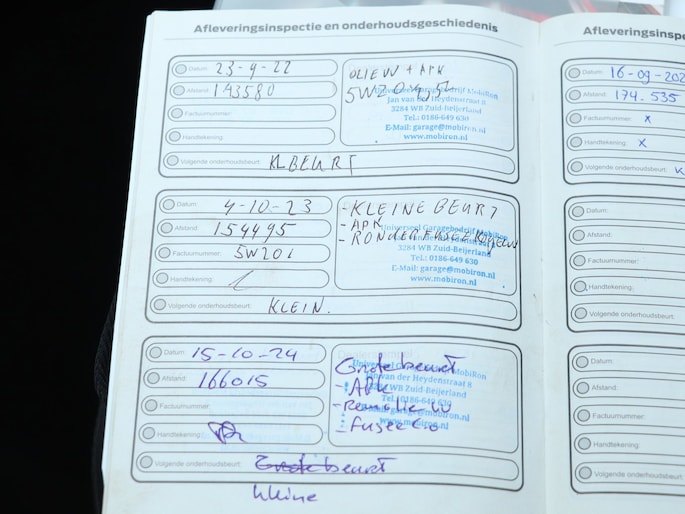 Afleveringsinspectie en onderhoudsgeschiedenis
Datum: 23-4-22
Afstand: 143580
Factuurnummer:
Handtekening:
Volgende onderhoudsbeurt: KL BEURT
OLIEW + APK
5W20 4,5L
Universeel Garagebedrijf MobiRon
Jan van der Heydenstraat 8
3284 WB Zuid-Beijerland
Tel.: 0186-649 630
E-Mail: garage@mobiron.nl
www.mobiron.nl
Datum: 4-10-23
Afstand: 154495
Factuurnummer: 5W20
Handtekening:
Volgende onderhoudsbeurt: KLEIN.
- KLEINE BEURT
- APK
- RONDER FUSEE
Universeel Garagebedrijf MobiRon
Jan van der Heydenstraat 8
3284 WB Zuid-Beijerland
Tel.: 0186-649 630
E-Mail: garage@mobiron.nl
www.mobiron.nl
Datum: 15-10-24
Afstand: 166015
Factuurnummer:
Handtekening:
Volgende onderhoudsbeurt: Grote beurt
kleine
Grote beurt
- APK
- Remolie
- Fusee
Universeel Garagebedrijf MobiRon
Jan van der Heydenstraat 8
3284 WB Zuid-Beijerland
Tel.: 0186-649 630
E-Mail: garage@mobiron.nl
www.mobiron.nl
Afleveringsinspe
Datum: 16-09-202
Afstand: 174.535
Factuurnummer: x
Handtekening: x
Volgende onderhoudsbeurt:
Datum:
Afstand:
Factuurnummer:
Handtekening:
Volgende onderhoudsbeurt:
Datum:
Afstand:
Factuurnummer:
Handtekening:
Volgende onderhoudsbeurt: